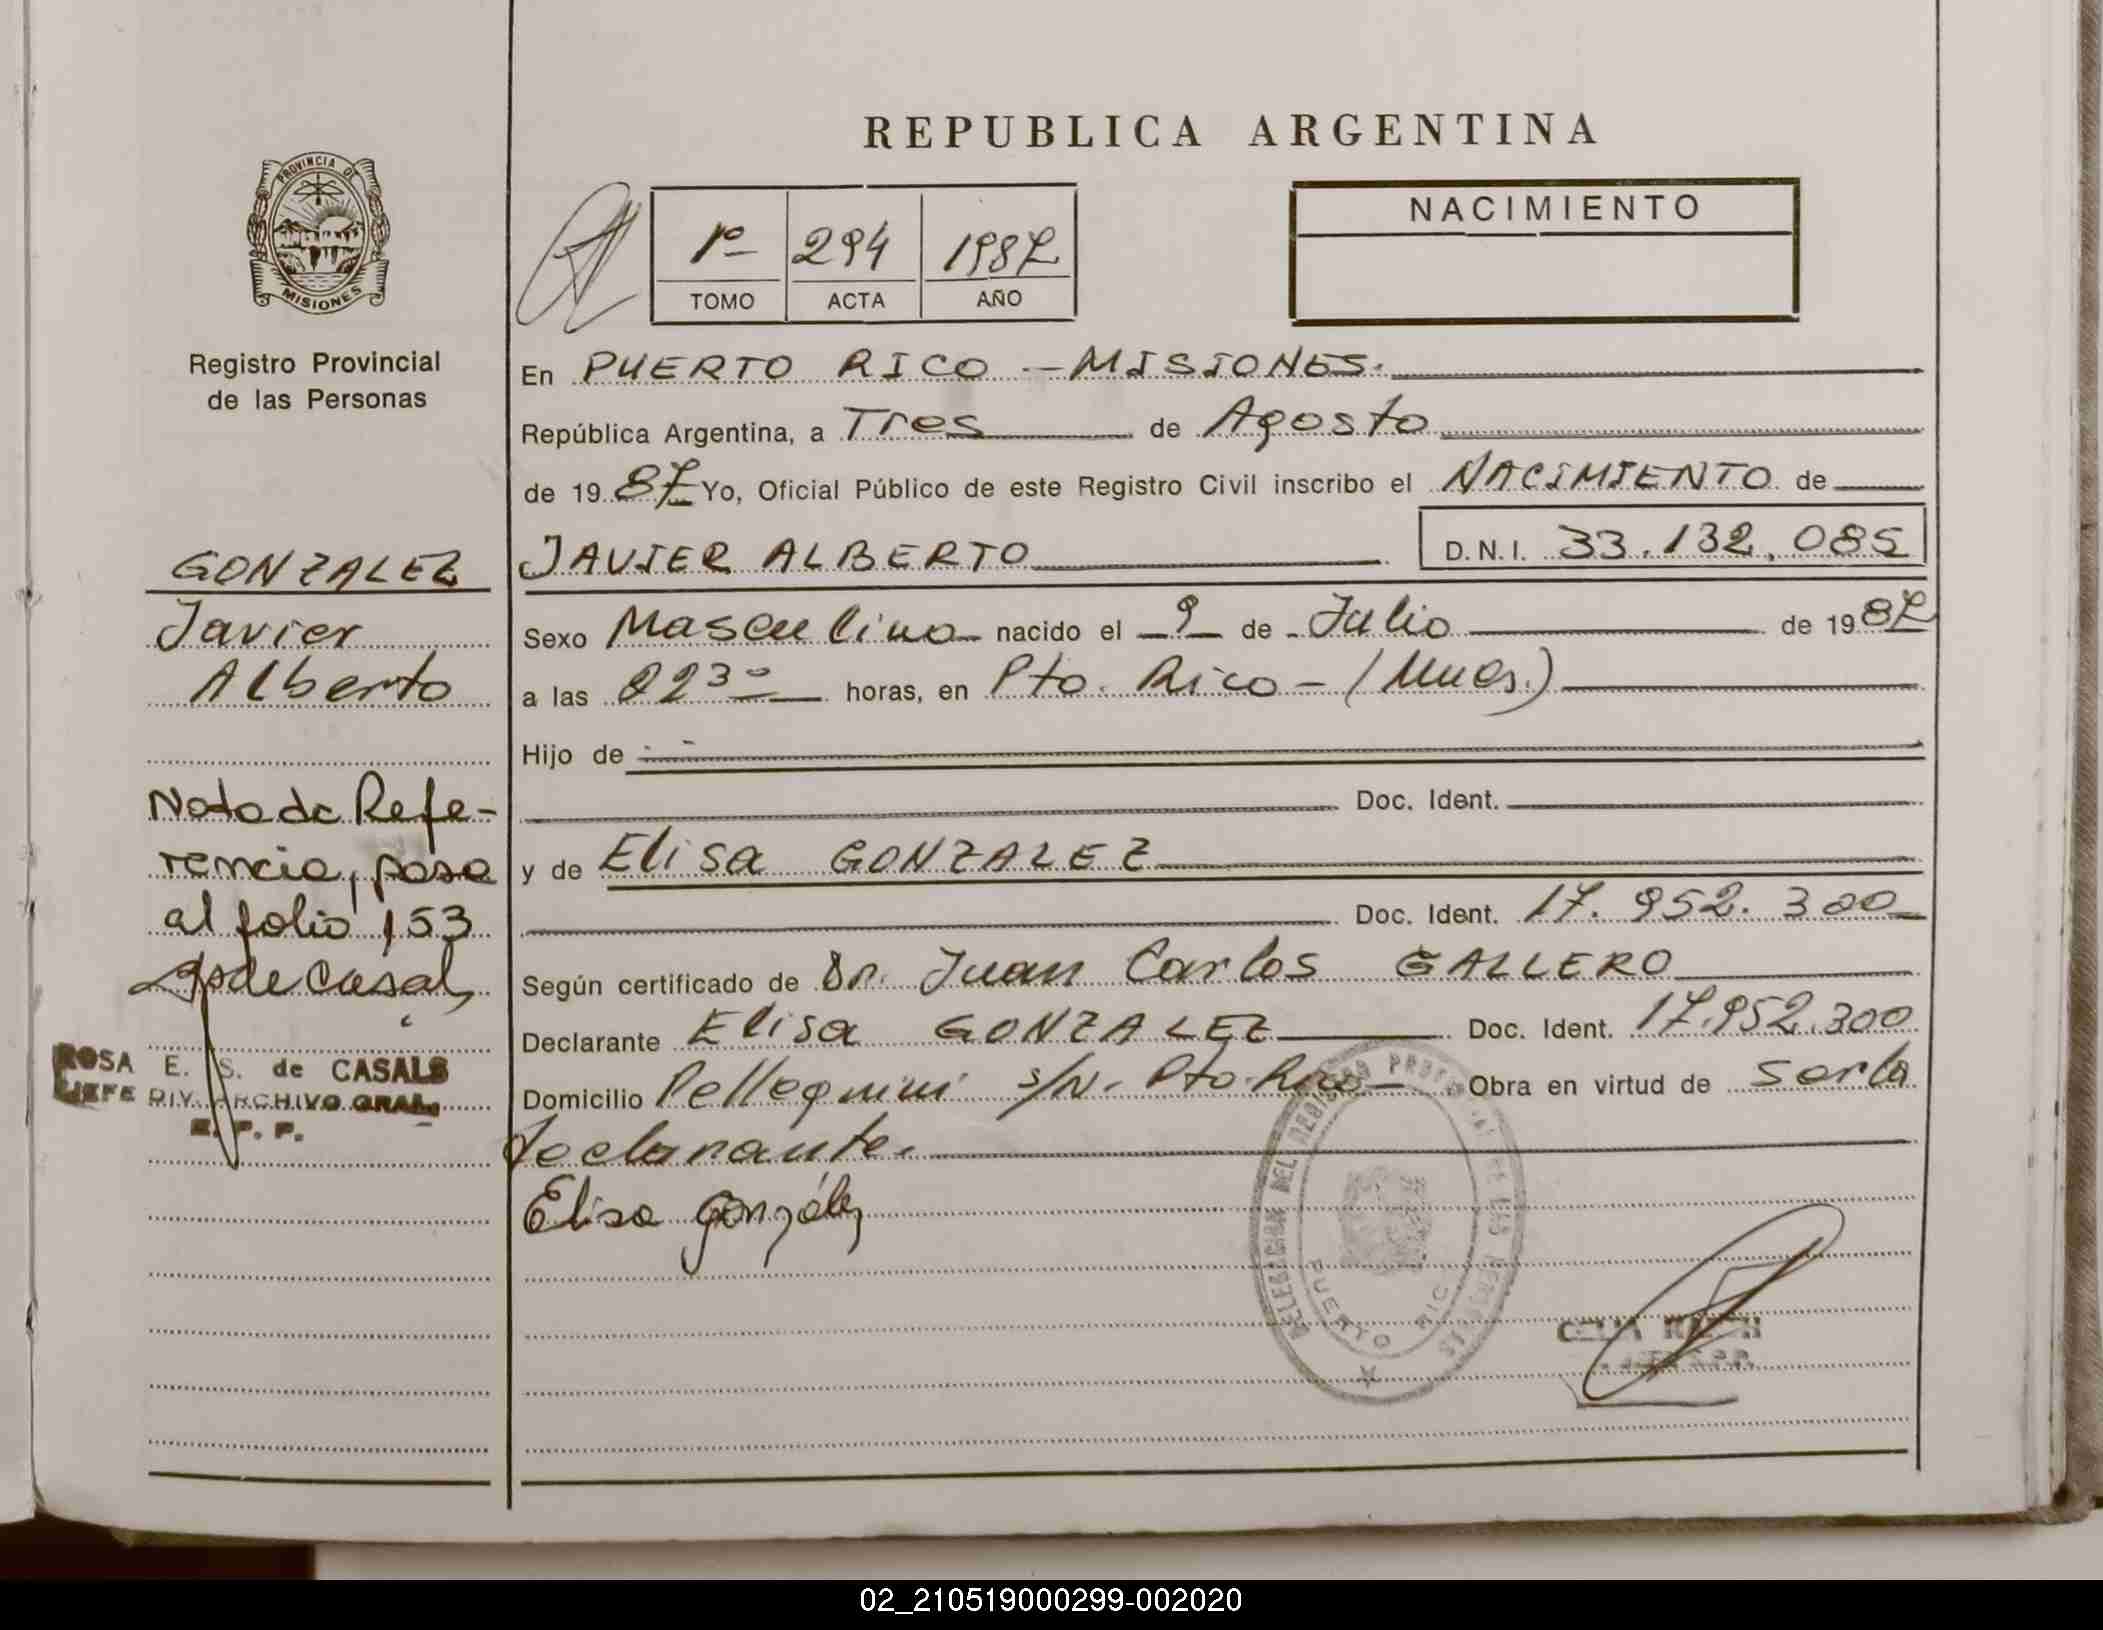 REPUBLICA ARGENTINA
PROVINCIA DE
MISIONES
Registro Provincial
de las Personas
1º 294 1987
TOMO ACTA AÑO
NACIMIENTO
En PUERTO RICO - MISIONES.
República Argentina, a Tres de Agosto
de 19 87 Yo, Oficial Público de este Registro Civil inscribo el NACIMIENTO de
JAVIER ALBERTO D.N.I. 33.132.085
GONZALEZ
Javier
Alberto
Sexo Masculino nacido el 9 de Julio de 19 87
a las 02 30 horas, en Pto. Rico - (Mnes.)
Hijo de
Doc. Ident.
y de Elisa GONZALEZ
Doc. Ident. 17.952.300
Según certificado de Dr. Juan Carlos GALLERO
Declarante Elisa GONZALEZ Doc. Ident. 17.952.300
Domicilio Pellegrini s/N. Pto. Rico Obra en virtud de ser la
declarante.
Elisa González
Nota de Refe-
rencia, pasa
al folio 153
ROSA E. S. de CASALS
JEFE DIV. ARCHIVO GRAL.
R. P. P.
DELEGACION DEL REGISTRO PROVINCIAL DE LAS PERSONAS
PUERTO RICO
02_210519000299-002020